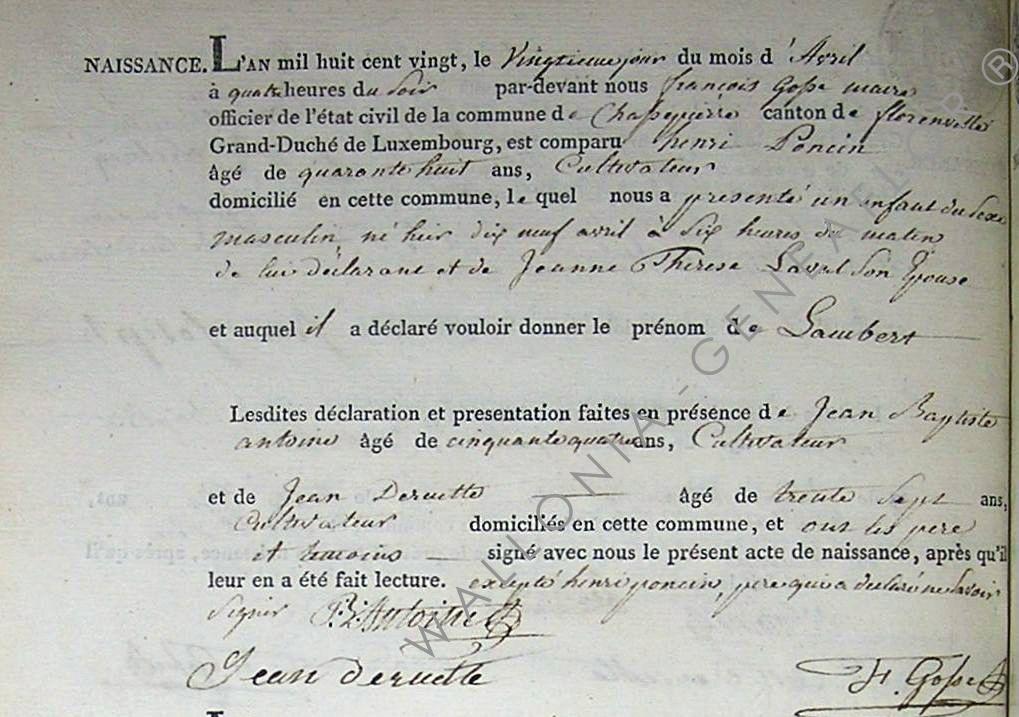 NAISSANCE. L'AN mil huit cent vingt, le vingtieme jour du mois d' Avril
à quatre heures du Soir par-devant nous françois Gosse maire
officier de l'état civil de la commune de Chassepierre canton de florenville
Grand-Duché de Luxembourg, est comparu henri Poncin
âgé de quarante huit ans, Cultivateur
domicilié en cette commune, le quel nous a presenté un enfant du Sexe
masculin, né hier dix neuf avril à Six heures du matin
de lui déclarant et de Jeanne Therese Laval Son Epouse
et auquel il a déclaré vouloir donner le prénom de Lambert
Lesdites déclaration et presentation faites en présence de Jean Baptiste
antoine âgé de cinquante quatre ans, Cultivateur
et de Jean Deruette âgé de trente Sept ans,
Cultivateur domiciliés en cette commune, et ont les pere
et temoins signé avec nous le présent acte de naissance, après qu'il
leur en a été fait lecture. excepté henri poncin, pere qui a declaré ne Savoir
Signer P: J: Antoine
Jean deruette F. Gosse
WALLONIA-GENEA ®